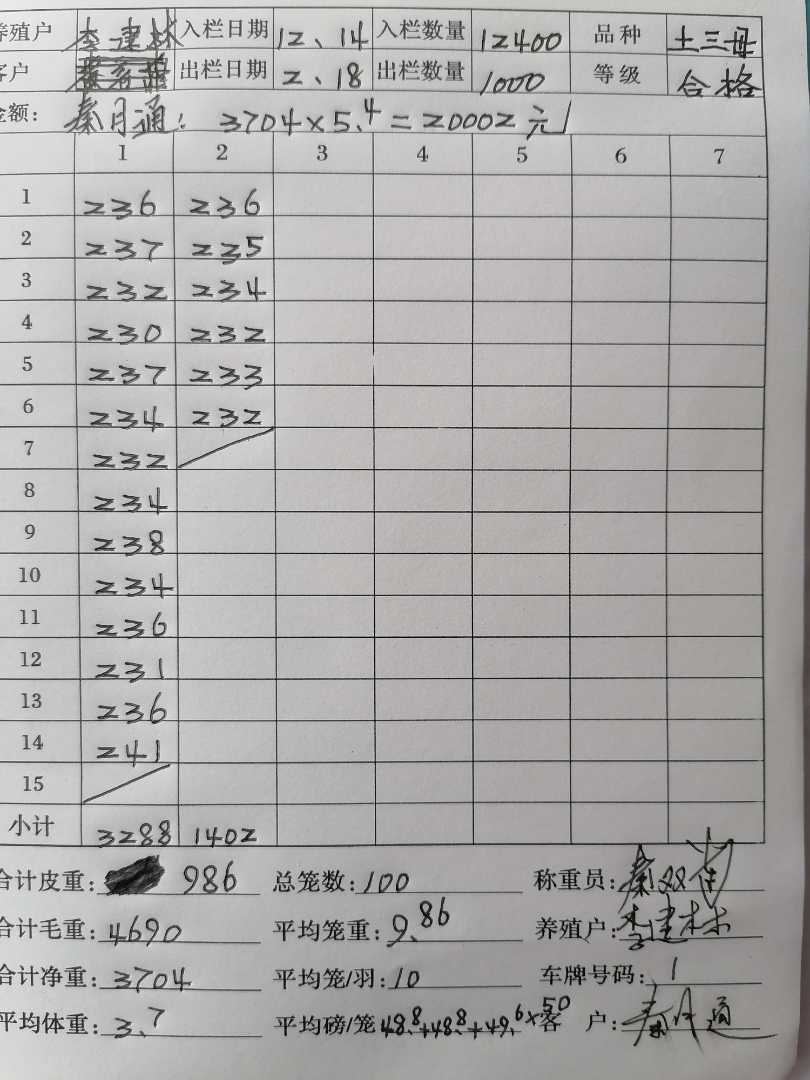 养殖户 李建林 入栏日期 12、14 入栏数量 12400 品种 土三母
客户 出栏日期 2、18 出栏数量 1000 等级 合格
金额: 秦月通: 3704×5.4=20002元
1 2 3 4 5 6 7
1 236 236
2 237 235
3 232 234
4 230 232
5 237 233
6 234 232
7 232
8 234
9 238
10 234
11 236
12 231
13 236
14 241
15
小计 3288 1402
合计皮重: 986 总笼数: 100 称重员: 秦双
合计毛重: 4690 平均笼重: 9.86 养殖户: 李建林
合计净重: 3704 平均笼/羽: 10 车牌号码: 1
平均体重: 3.7 平均磅/笼 48.8+48.8+49.6×50 客户: 秦月通